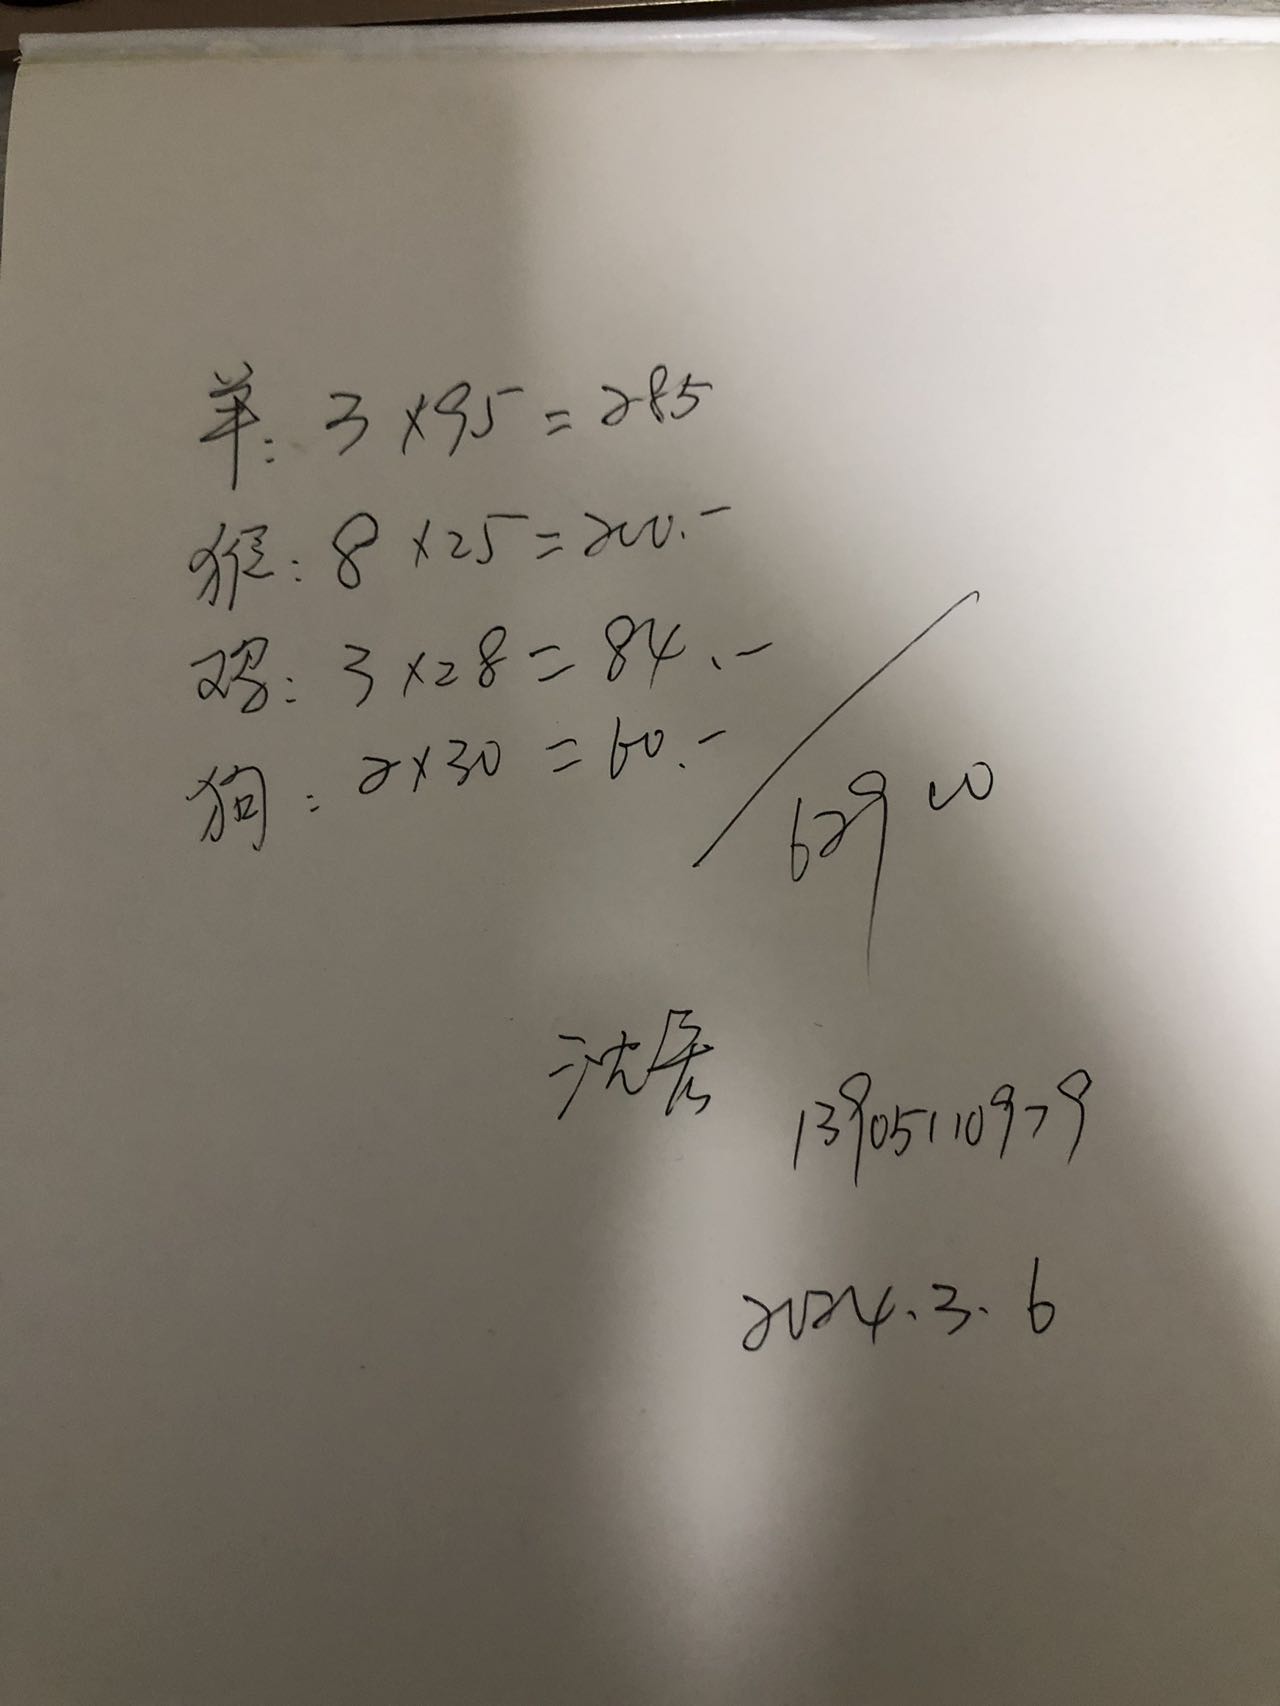 羊: 3×95=285
猴: 8×25=200.-
鸡: 3×28=84.-
狗: 2×30=60.-
629 00
沈
13905110979
2024.3.6